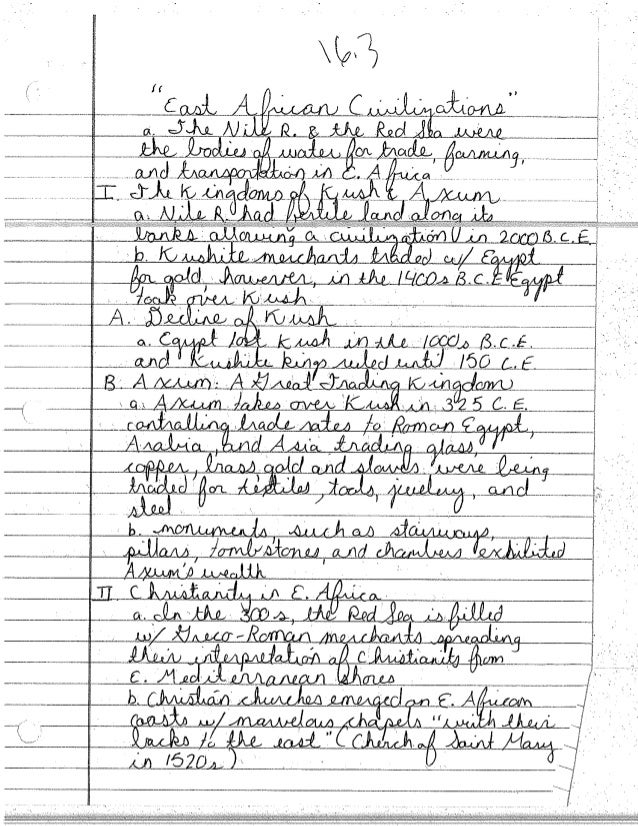 16.3
"East African Civilizations"
a. The Nile R. & the Red Sea were
the bodies of water for trade, farming,
and transportation in E. Africa
I. The Kingdoms of Kush & Axum
a. Nile R. had fertile land along its
banks allowing a civilization in 2000 B.C.E.
b. Kushite merchants traded w/ Egypt
for gold, however, in the 1400s B.C.E Egypt
took over Kush
A. Decline of Kush
a. Egypt lost Kush in the 1000s B.C.E.
and Kushite kings ruled until 150 C.E.
B. Axum: A Great Trading Kingdom
a. Axum takes over Kush in 325 C.E.
controlling trade rates to Roman Egypt,
Arabia, and Asia trading glass,
copper, brass gold and slaves were being
traded for textiles, tools, jewelery, and
steel
b. monuments, such as stairways,
pillars, tombstones, and chambers exhibited
Axum's wealth
II. Christianity in E. Africa
a. In the 300s, the Red Sea is filled
w/ Greco-Roman merchants spreading
their interpretation of Christianity from
E. Mediterranean shores
b. Christian churches emerged on E. African
coasts w/ marvelous chapels "with their
backs to the east" (Cherch of Saint Mary
in 1520s)